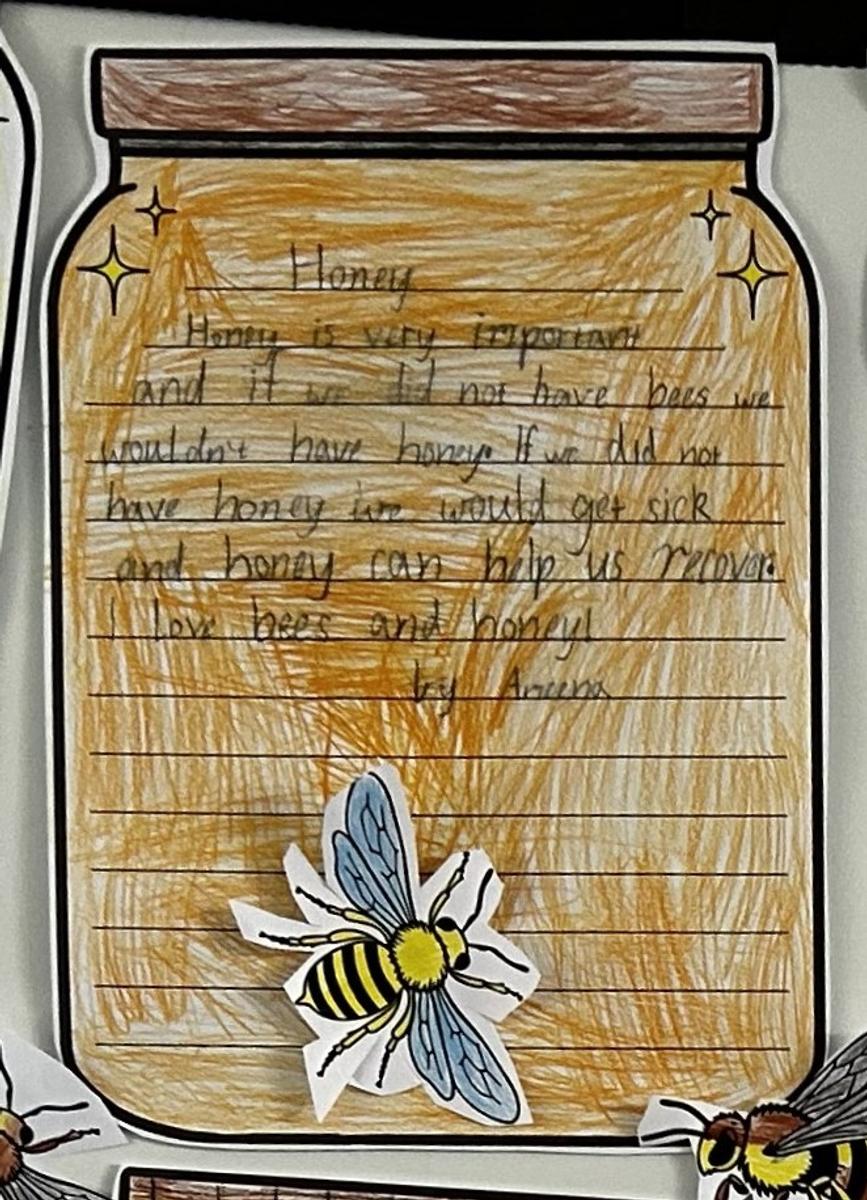 Honey
Honey is very important
and if we did not have bees we
wouldn't have honey. If we did not
have honey we would get sick
and honey can help us recover.
I love bees and honey!
by Ameena